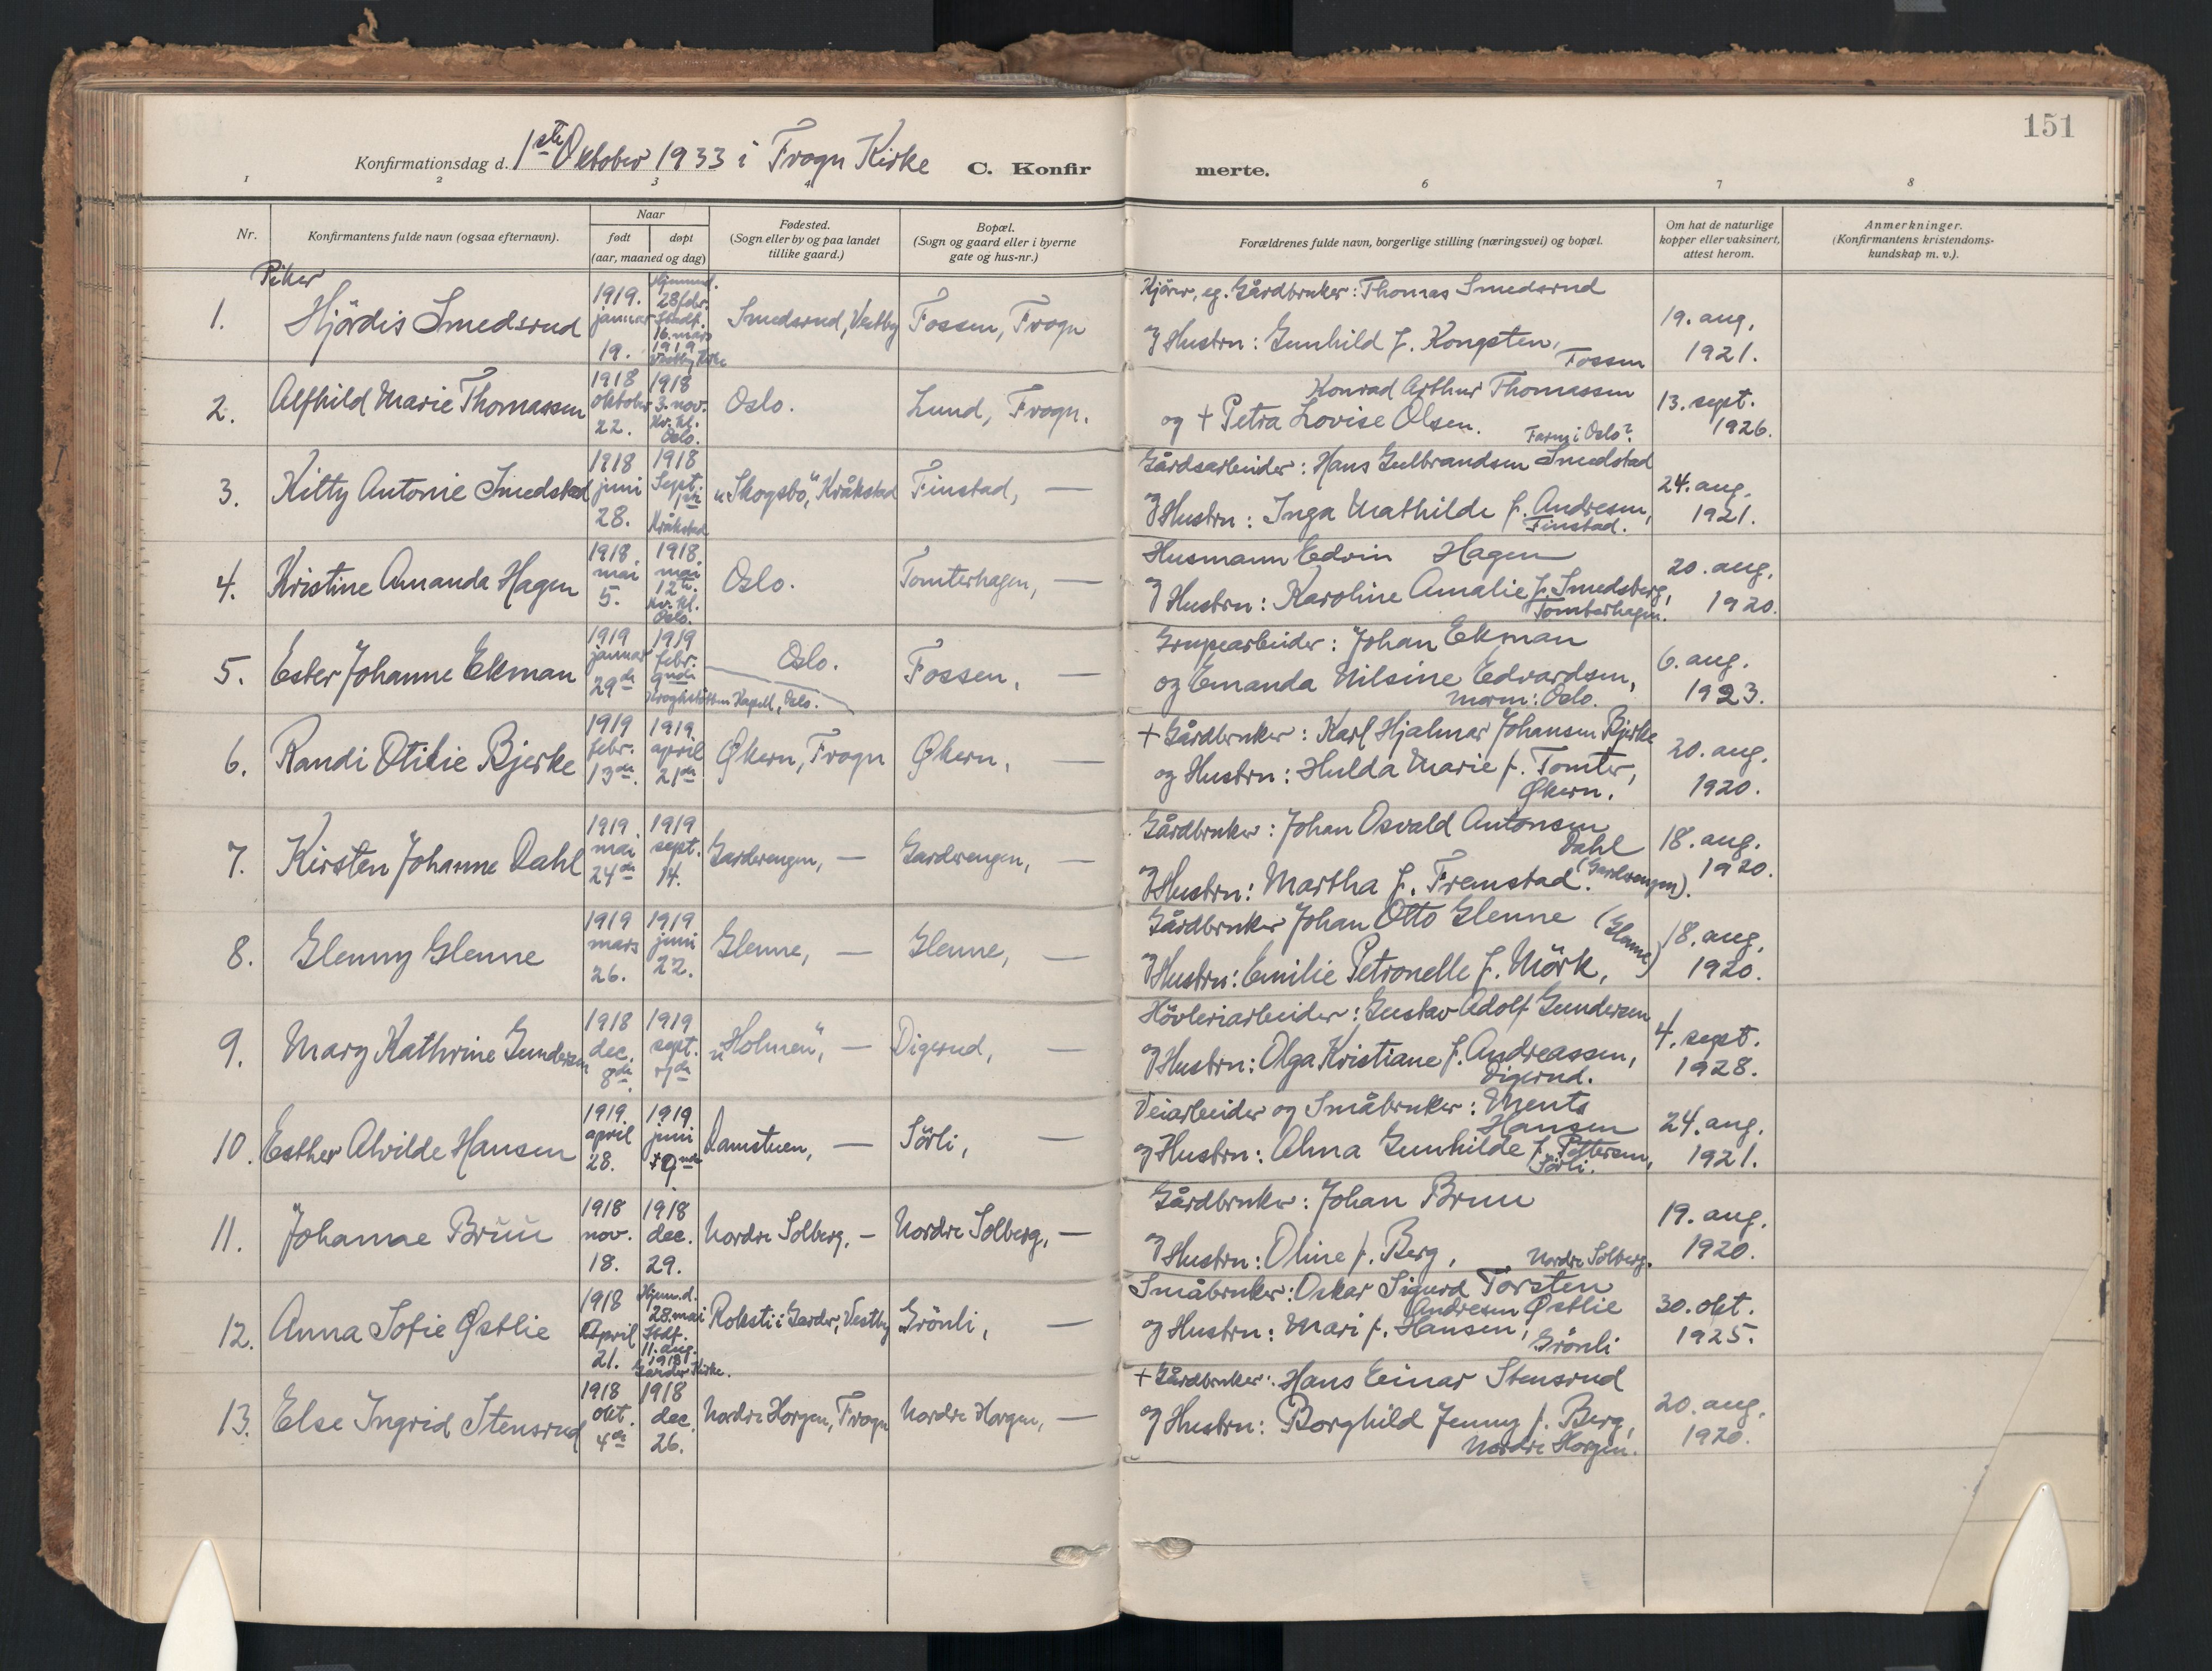 151
Konfirmationsdag d. 1ste Oktober 1933 i Frogn Kirke C. Konfir merte.
1 2 3 4 6 7 8
Nr. Konfirmantens fulde navn (ogsaa efternavn). Naar født døpt (aar, maaned og dag) Fødested. (Sogn eller by og paa landet tillike gaard.) Bopæl. (Sogn og gaard eller i byerne gate og hus-nr.) Forældrenes fulde navn, borgerlige stilling (næringsvei) og bopæl. Om hat de naturlige kopper eller vaksinert, attest herom. Anmerkninger. (Konfirmantens kristendoms-kundskap m. v.).
Piker
1. Hjördis Smedsrud 1919. januar 19. Hjemmed. 28 febr. Stadf. 16. mars 1919 Vestby Kirke Smedsrud, Vestby Fossen, Frogn
Kjörer, eg. Gårdbruker: Thomas Smedsrud
og Hustru: Gunhild f. Kongsten, Fossen
19. aug. 1921.
2. Alfhild Marie Thomassen 1918 oktober 22. 1918 3. nov. Kv. kl. Oslo. Oslo. Lund, Frogn.
Konrad Arthur Thomassen
og + Petra Lovise Olsen. Farm i Oslo?
13. sept. 1926.
3. Kitty Antonie Smedstad 1918 juni 28. 1918 Sept. Kråkstad "Skogsbo," Kråkstad Finstad, —
Gårdsarbeider: Hans Gulbrandsen Smedstad
og Hustru: Inga Mathilde f. Andresen, Finstad.
24. aug. 1921.
4. Kristine Amanda Hagen 1918 mai 5. 1918. mai 12te. Kv. kl. Oslo. Oslo. Tomterhagen, —
Husmann Edvin Hagen
og Hustru: Karoline Amalie f. Smedsberg, Tomterhagen.
20. aug. 1920.
5. Ester Johanne Ekman 1919 januar 29de 1919 febr. 9nde Kroghstötten Kapell, Oslo. Oslo. Fossen, —
Grupearbeider: Johan Ekman
og Emanda Nilsine Edvardsen, Morm: Oslo.
6. aug. 1923.
6. Randi Otilie Bjerke 1919 febr. 13de. 1919. april 21de Økern, Frogn Økern, —
+ Gårdbruker: Karl Hjalmar Johansen Bjerke
og Hustru: Hulda Marie f. Tomter, Økern.
20. aug. 1920.
7. Kirsten Johanne Dahl 1919. mai 24de 1919 sept. 14. Garderengen, — Garderengen, —
Gårdbruker: Johan Osvald Antonsen Dahl
og Hustru: Martha f. Fremstad. (Garderengen).
18. aug. 1920.
8. Glenny Glenne 1919 mars 26. 1919 juni 22. Glenne, — Glenne, —
Gårdbruker Johan Otto Glenne (Glenne)
og Hustru: Emilie Petronelle f. Mörk,
18. aug. 1920.
9. Mary Kathrine Gundersen 1918 dec. 8de. 1919 sept. 7de "Holmen", — Digerud, —
Hövleriarbeider: Gustav Adolf Gundersen
og Hustru: Olga Kristiane f. Andreassen, Digerud.
4. sept. 1928.
10. Esther Alvilde Hansen 1919. april 28. 1919 juni 9nde Damstuen, — Sörli, —
Veiarbeider og Småbruker: Ments Hansen
og Hustru: Alma Gunhilde f. Pettersen, Sörli.
24. aug. 1921.
11. Johanne Bruu 1918 nov. 18. 1918 dec. 29. Nordre Solberg, — Nordre Solberg, —
Gårdbruker: Johan Bruu
og Hustru: Oline f. Berg, Nordre Solberg.
19. aug. 1920.
12. Anna Sofie Østlie 1918 April 21. Hjem.d. 28. mai Stdf. 11. aug. 1918 Garder Kirke. Roksti i Garder, Vestby Grönli, —
Småbruker: Oskar Sigurd Torsten Andresen Østlie
og Hustru: Mari f. Hansen, Grönli
30. okt. 1925.
13. Else Ingrid Stensrud 1918 okt. 4de 1918 dec. 26. Nordre Horgen, Frogn Nordre Horgen, —
+ Gårdbruker: Hans Einar Stensrud
og Hustru: Borghild Jenny f. Berg, Nordre Horgen.
20. aug. 1920.